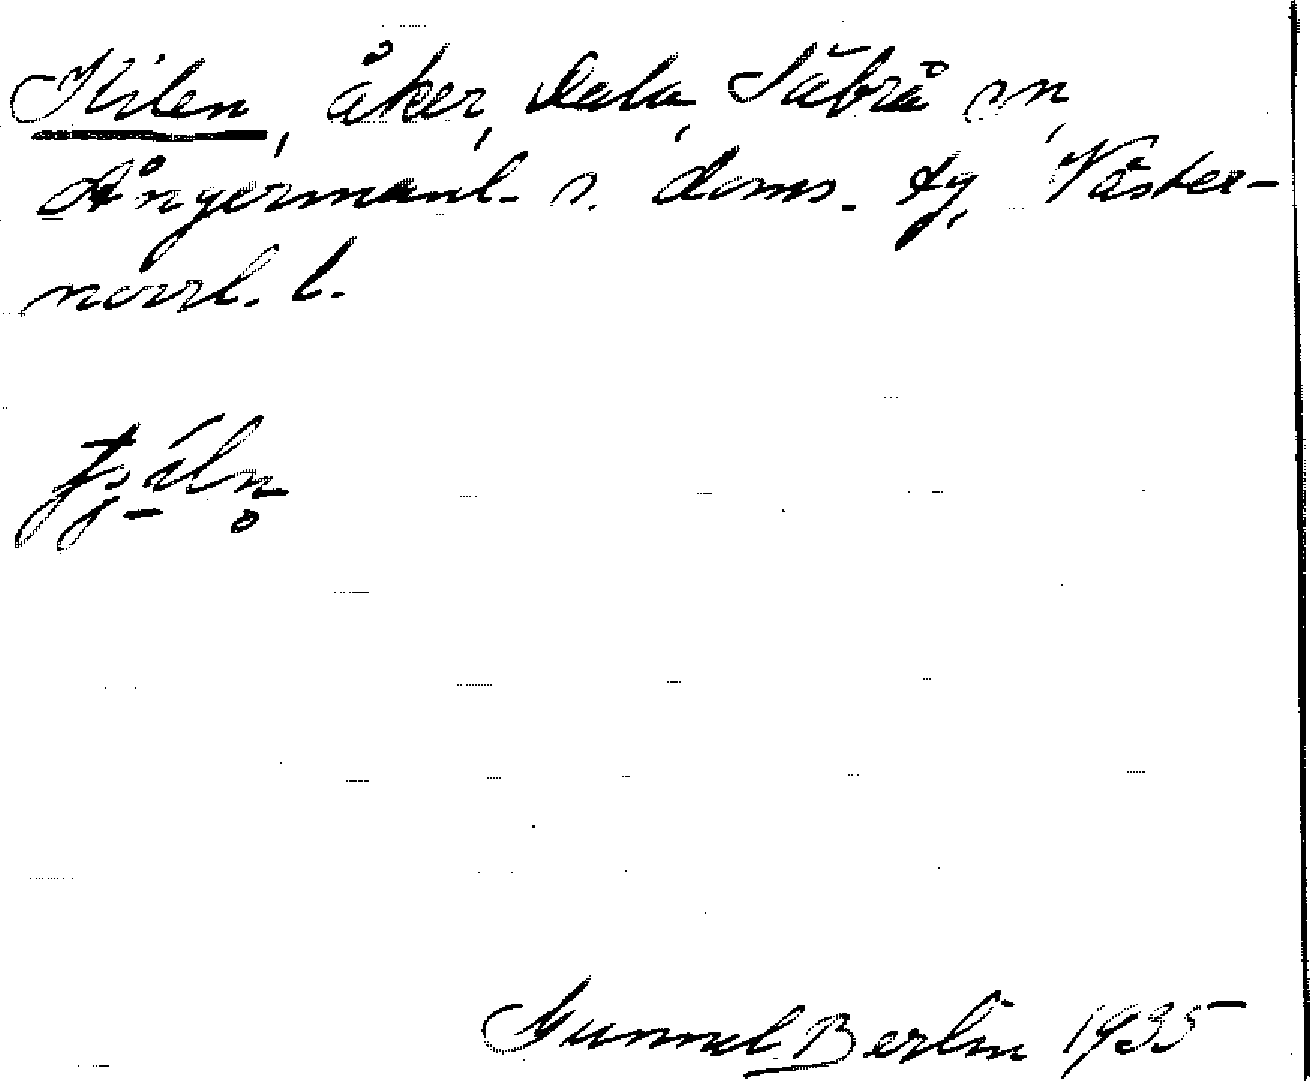 Kilen, åker, Dala, Säbrå sn,
Ångermanl. s. doms. tg, Väster-
norrl. l.
Gunnel Berlin 1935